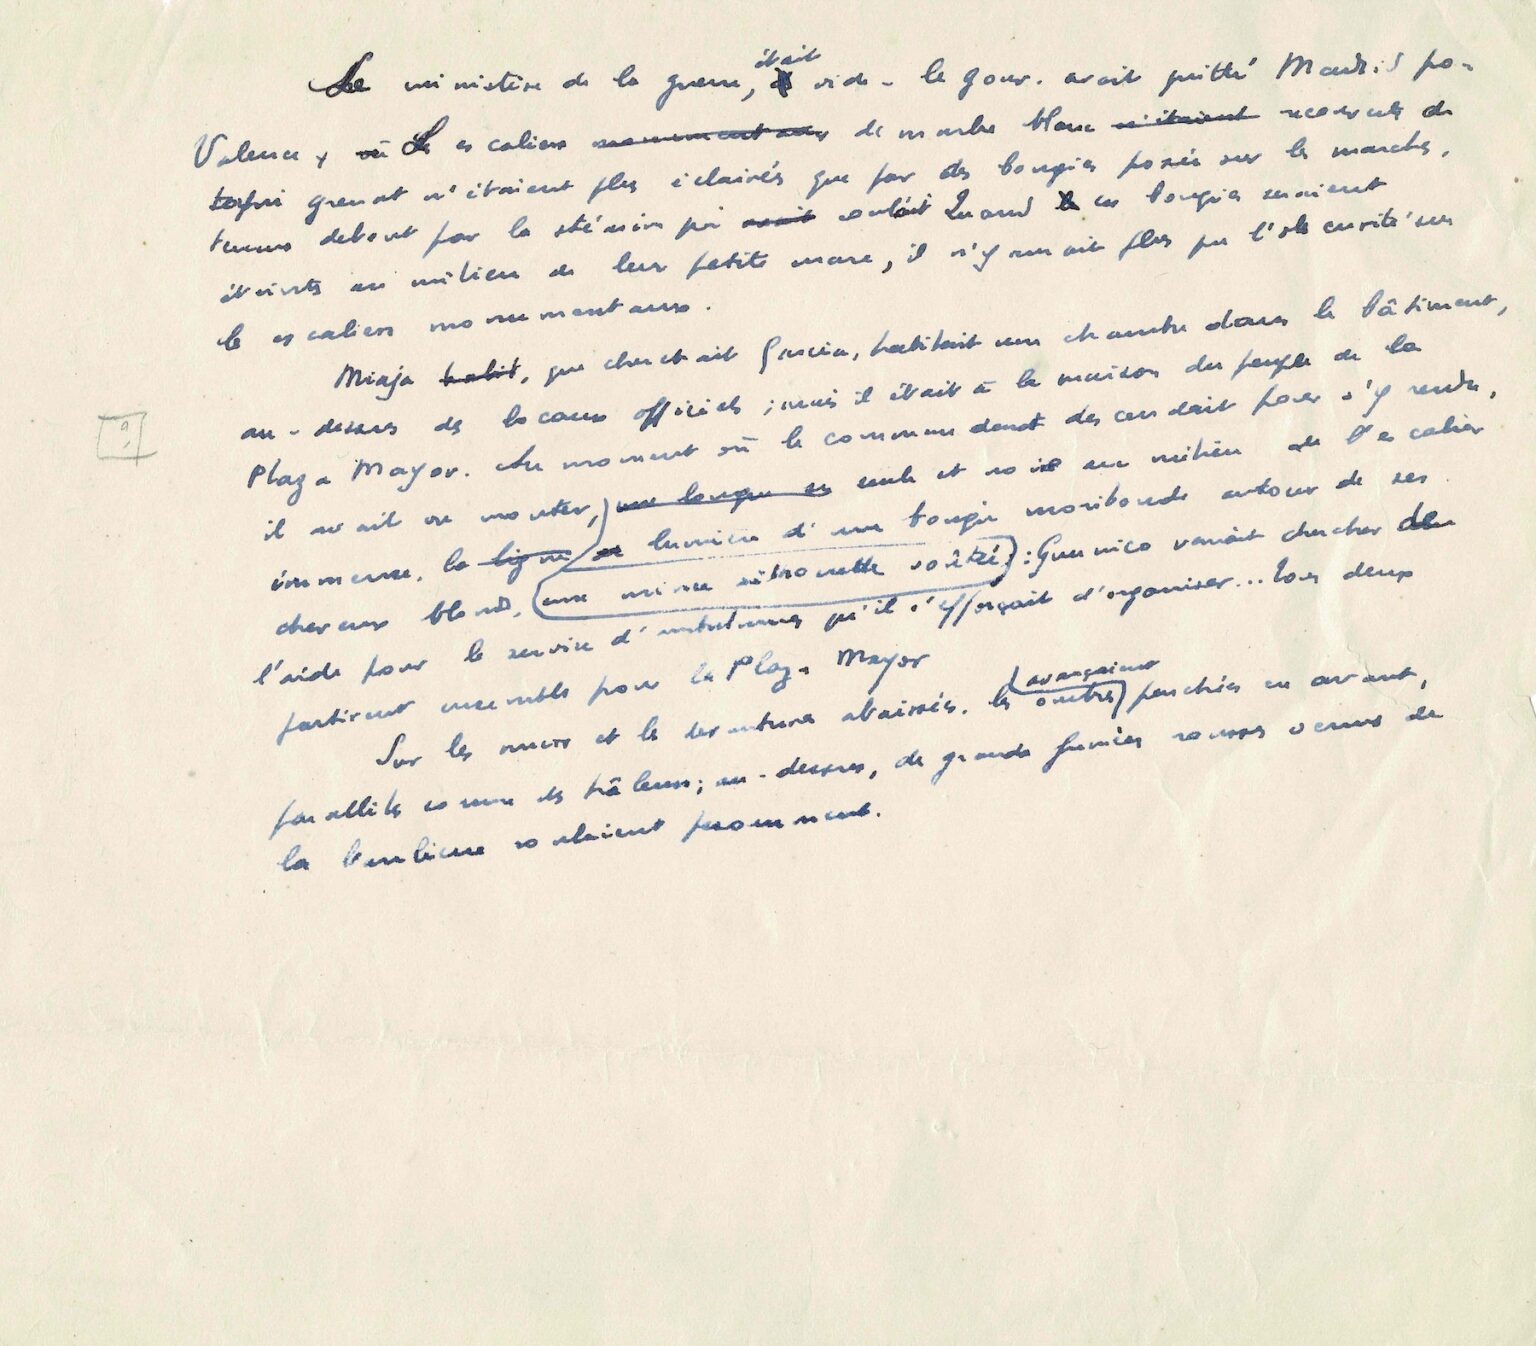 était
Le ministère de la guerre, vide - le gouv. avait quitté Madrid po-
Valence, où Les escaliers monumentaux de marbre blanc n'étaient recouverts de
tapis grenat n'étaient plus éclairés que par des bougies posées sur les marches,
tenues debout par la stéarine qui avait coulait Quand ces bougies seraient
éteintes au milieu de leur petite mare, il n'y aurait plus que l'obscurité sur
les escaliers monumentaux.
Miaja habit, que cherchait Garcia, habitait une chambre dans le bâtiment,
au-dessus des locaux officiels ; mais il était à la maison du peuple de la
Plaza Mayor. Au moment où le commandant descendait pour s'y rendre,
il avait vu monter, une longue et seule et noire au milieu de l'escalier
immense, la ligne lumière d'une bougie moribonde autour de ses
cheveux blonds, une mince silhouette voûtée : Guernico venait chercher de
l'aide pour le service d'ambulances qu'il s'efforçait d'organiser... Tous deux
partirent ensemble pour la Plaza Mayor
avançaient
Sur les murs et les devantures abaissées, les ombres penchées en avant,
parallèles comme des hâleurs ; au-dessus, de grandes fumées rousses venues de
la banlieue roulaient pesamment.